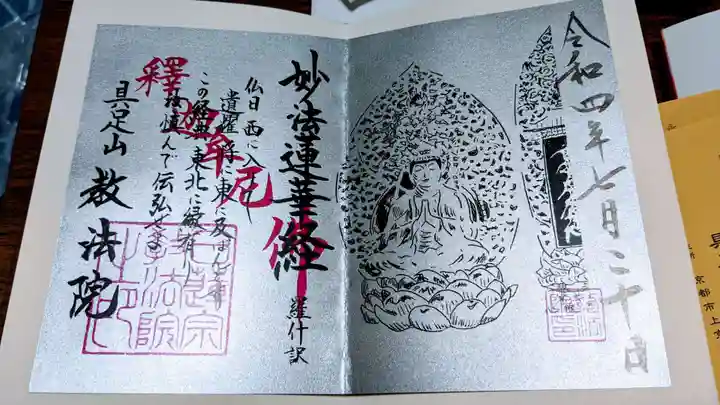 令和四年七月二十日
妙法蓮華経
羅什訳
仏日西に入
遺耀将に東に及ばんとす
この経典東北に縁有り
汝慎んで伝弘せよ
釋迦牟尼佛
具足山 教法院
京都市上京